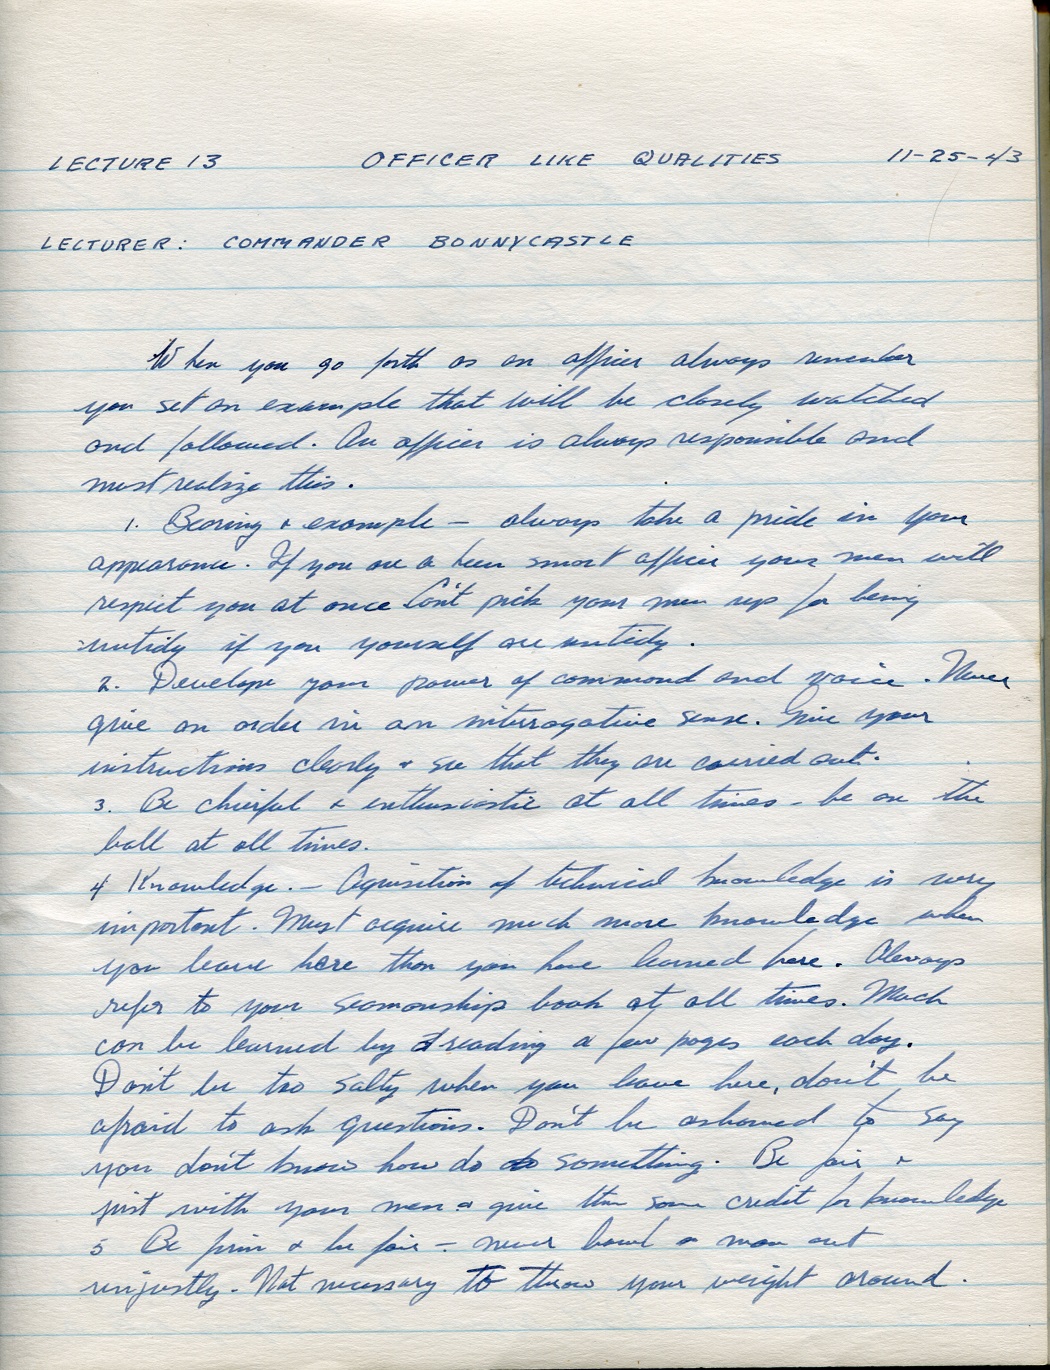 LECTURE 13 OFFICER LIKE QUALITIES 11-25-43
LECTURER: COMMANDER BONNYCASTLE
When you go forth as an officer always remember
you set an example that will be closely watched
and followed. An officer is always responsible and
must realize this.
1. Bearing & example - always take a pride in your
appearance. If you are a keen smart officer your men will
respect you at once Can't pick your men up for being
untidy if you yourself are untidy.
2. Develope your power of command and voice. Never
give an order in an interrogative sense. Give your
instructions clearly & see that they are carried out.
3. Be chierful & enthusiastic at all times - be on the
ball at all times.
4 Knowledge. - Aquisition of technical knowledge is very
important. Must acquire much more knowledge when
you leave here than you have learned here. Always
refer to your seamanship book at all times. Much
can be learned by reading a few pages each day.
Don't be too salty when you leave here, don't be
afraid to ask questions. Don't be ashamed to say
you don't know how do do something. Be fair &
just with your men & give them some credit for knowledge
5 Be firm & be fair - never bawl a man out
unjustly. Not necessary to throw your weight around.